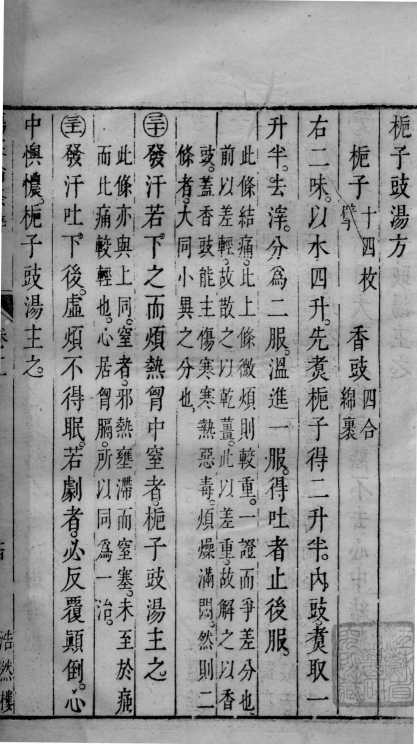 梔子豉湯方
梔子十四枚擘 香豉四合綿裹
右二味。以水四升。先煑梔子得二升半。內豉。煑取一
升半。去滓。分爲二服。溫進一服。得吐者止後服。
此條結痛。比上條微煩則較重。一證而爭差分也。
前以差輕。故散之以乾薑。此以差重。故解之以香
豉。蓋香豉能主傷寒寒熱惡毒。煩燥滿悶。然則二
條者。大同小異之分也。
㊂十發汗若下之而煩熱胷中窒者。梔子豉湯主之。
此條亦與上同。窒者。邪熱壅滯而窒塞。未至於痛
而比痛較輕也。心居胷膈。所以同爲一治。
發汗吐下後。虛煩不得眠。若劇者。必反覆顚倒。心
中懊憹。梔子豉湯主之。
浩然樓